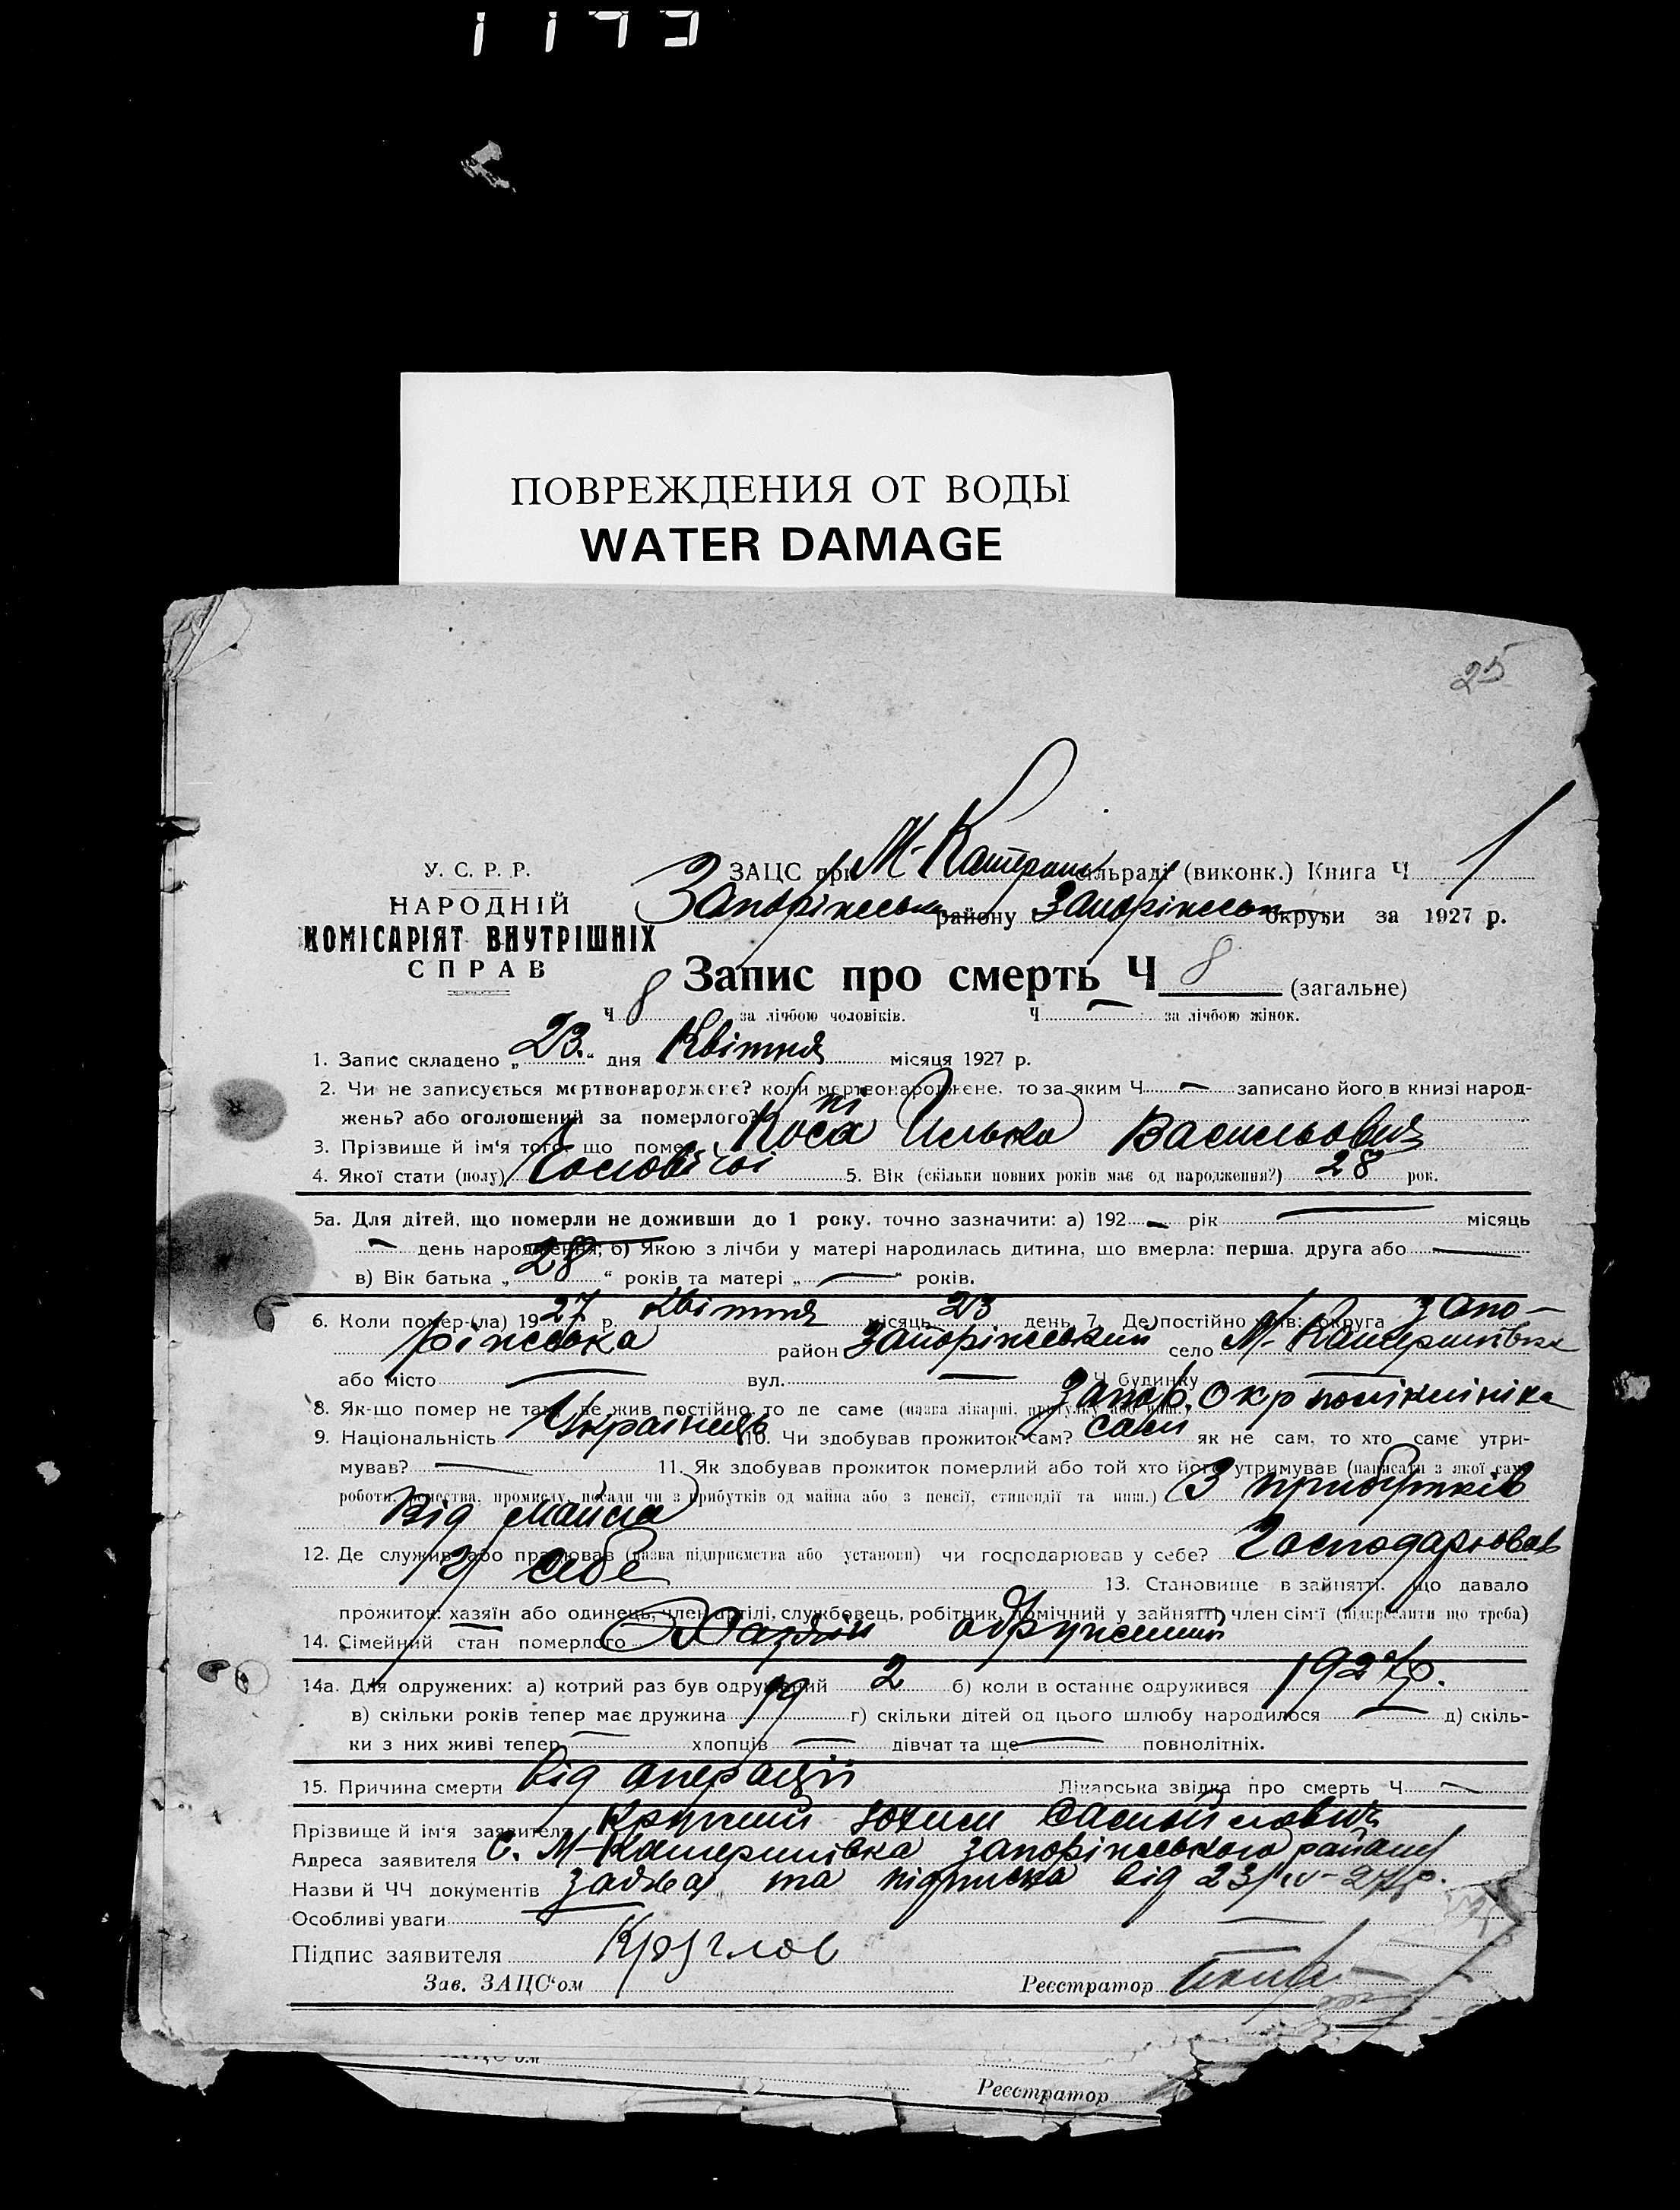 1193
ПОВРЕЖДЕНИЯ ОТ ВОДЫ
WATER DAMAGE
25
У. С. Р. Р.
НАРОДНІЙ
КОМІСАРІЯТ ВНУТРІШНІХ
СПРАВ
ЗАЦС при М-Катерин сільраді (виконк.) Книга Ч 1
Запоріжськ району Запоріжськ округи за 1927 р.
Запис про смерть Ч 8 (загальне)
Ч 8 за лічбою чоловіків. Ч — за лічбою жінок.
1. Запис складено „23." дня Квітня місяця 1927 р.
2. Чи не записується мертвонароджене? коли мертвонароджене, то за яким Ч — записано його в книзі народ-
жень? або оголошений за померлого? ні
3. Прізвище й ім'я того, що помер Коса Илько Васильович
4. Якої стати (полу) Чоловічої 5. Вік (скільки повних років має од народження?) 28 рок.
5а. Для дітей, що померли не доживши до 1 року, точно зазначити: а) 192 — рік — місяць
— день народження; б) Якою з лічби у матері народилась дитина, що вмерла: перша, друга або —
в) Вік батька „28" років та матері „—" років.
6. Коли помер-(ла) 1927 р. Квітня місяць 23 день 7. Де постійно жив: округа Запо-
ріжська район Запоріжський село М-Катеринівка
або місто — вул. — Ч будинку —
8. Як-що помер не там, де жив постійно, то де саме (назва лікарні, притулку або инш.) Запор. Окр поліклініка
9. Національність Українець 10. Чи здобував прожиток сам? сам як не сам, то хто саме утри-
мував? — 11. Як здобував прожиток померлий або той хто його утримував (написати з якої саме
роботи, ремества, промислу, посади чи з прибутків од майна або з пенсії, стипендії та инш.) З прибутків
від майна
12. Де служив або працював (назва підприємства або установи) чи господарював у себе? Господарював
у себе 13. Становище в зайнятті, що давало
прожиток: хазяїн або одинець, член артілі, службовець, робітник, помічний у зайнятті член сім'ї (підкреслити що треба)
14. Сімейний стан померлого Хазяїн одружений
14а. Для одружених: а) котрий раз був одружений 2 б) коли в останнє одружився 1927 р.
в) скільки років тепер має дружина 19 г) скільки дітей од цього шлюбу народилося — д) скіль-
ки з них живі тепер — хлопців — дівчат та ще — повнолітніх.
15. Причина смерти від операції Лікарська звідка про смерть Ч —
Прізвище й ім'я заявителя
Адреса заявителя С. М-Катеринівка Запоріжського району
Назви й ЧЧ документів заява та підписка від 23/IV-27 р.
Особливі уваги —
Підпис заявителя Круглов
Зав. ЗАЦС'ом — Реєстратор
ЗАЦС'ом
Реєстратор